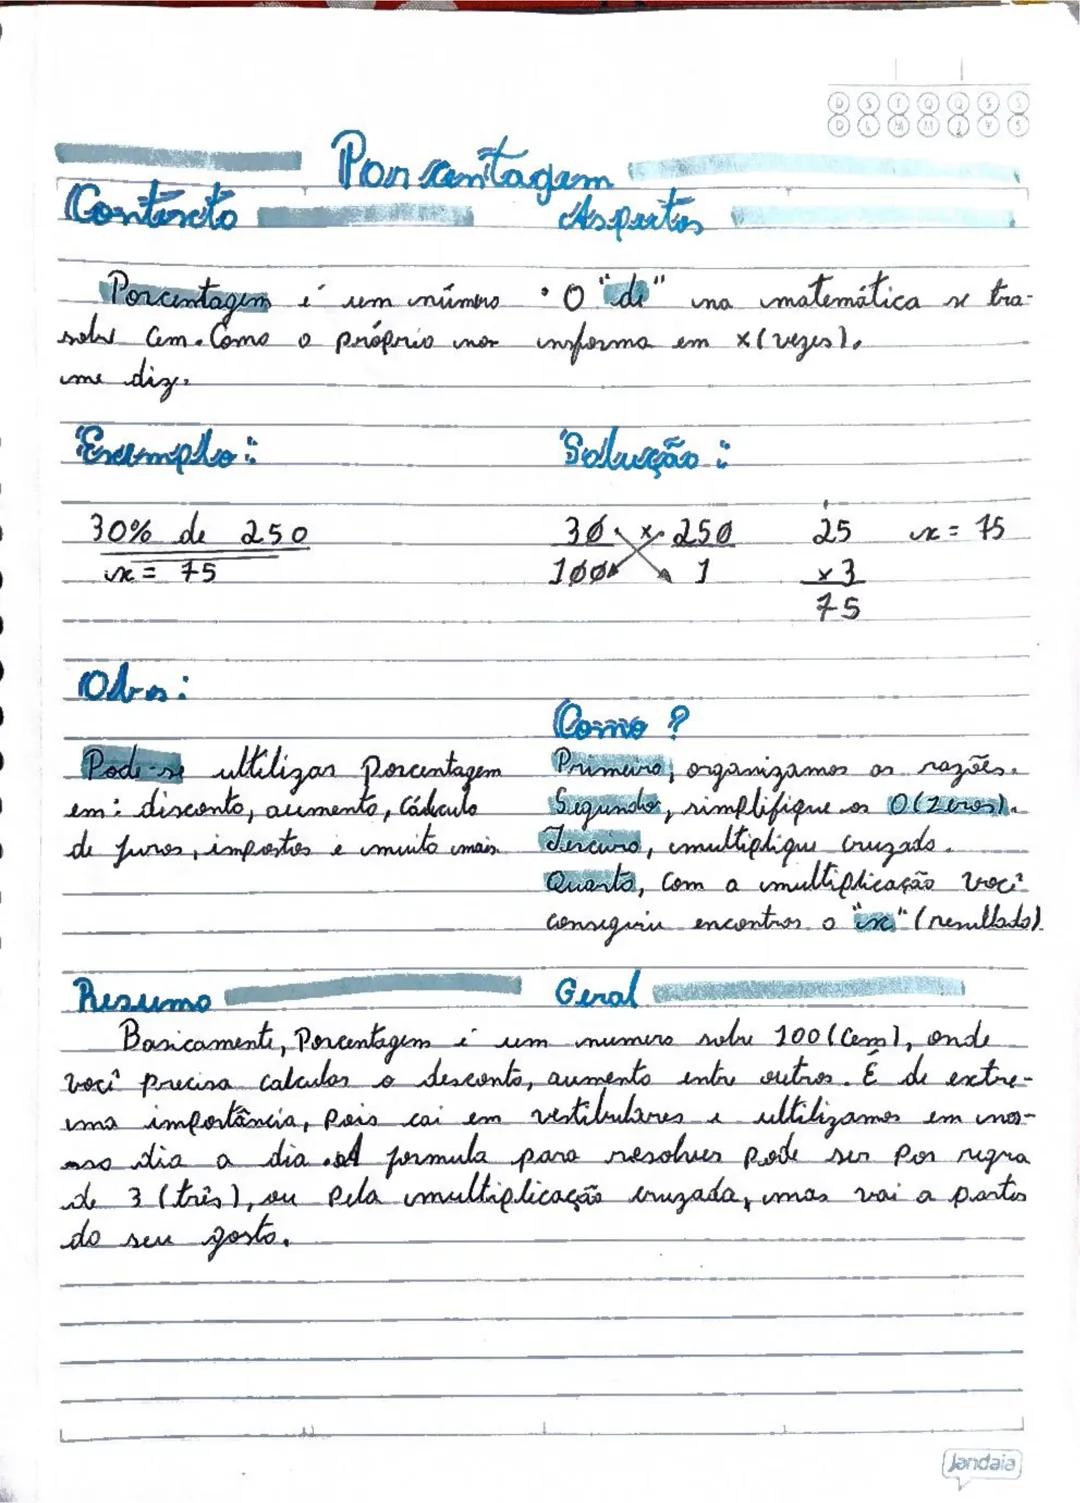 D S T Q Q S S
D L M M J V S
Porcentagem
Contexto
Aspectos
Porcentagem é um número
sobre Cem. Como o próprio no-
me diz.
• O "de" na matemática se tra-
nsforma em x (vezes).
Exemplo:
30% de 250
x = 75
Solução:
30 x 250 25 x = 75
100 1 x3
75
Obs:
Pode-se ultilizar porcentagem
em: disconto, aumento, Cálculo
de juros, impostos e muito mais
Como?
Primeiro, organizamos as razões.
Segundo, simplifique os 0 (zeros).
Terceiro, multiplique cruzado.
Quarto, Com a multiplicação você
conseguiu encontrar o "x" (resultado).
Resumo Geral
Basicamente, Porcentagem é um numero sobre 100 (Cem), onde
você precisa calcular o desconto, aumento entre outros. É de extre-
ma importância, pois cai em vestibulares e ultilizamos em nos-
so dia a dia. A formula para resolver pode ser por regra
de 3 (três), ou pela multiplicação cruzada, mas vai a partir
do seu gosto.
Jandaia